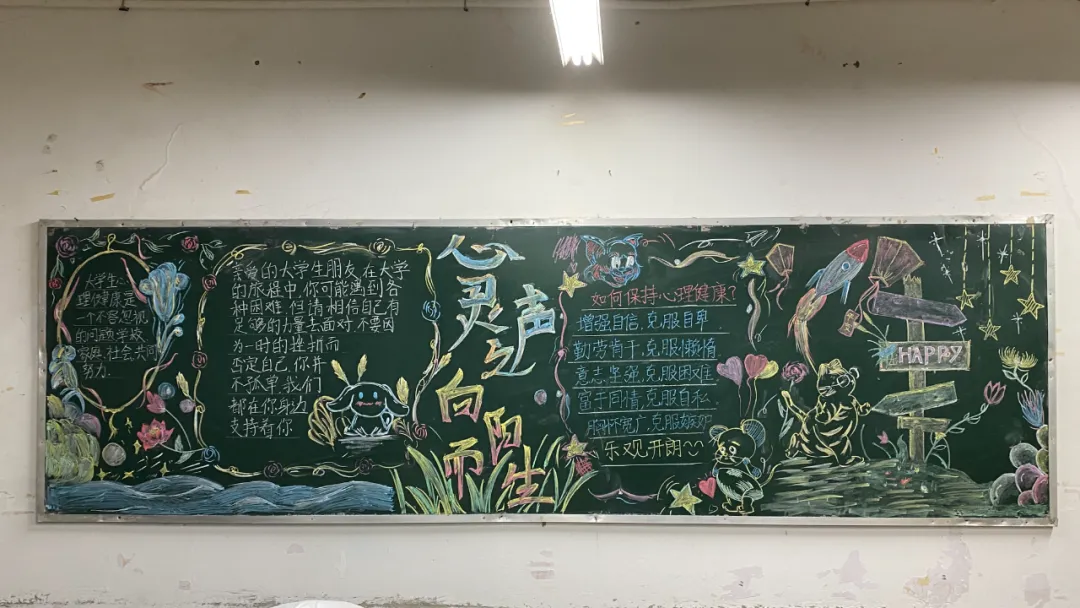 大学生心
理健康是
一个不容忽视
的问题,学校
家庭,社会共同
努力.
亲爱的大学生朋友,在大学
的旅程中,你可能遇到各
种困难,但请相信自己有
足够的力量去面对,不要因
为一时的挫折而
否定自己,你并
不孤单,我们
都在你身边
支持着你
心灵之声
向阳而生
如何保持心理健康?
增强自信,克服自卑
勤劳肯干,克服懒惰
意志坚强,克服困难
富于同情,克服自私.
胸怀宽广,克服嫉妒
乐观开朗~
HAPPY